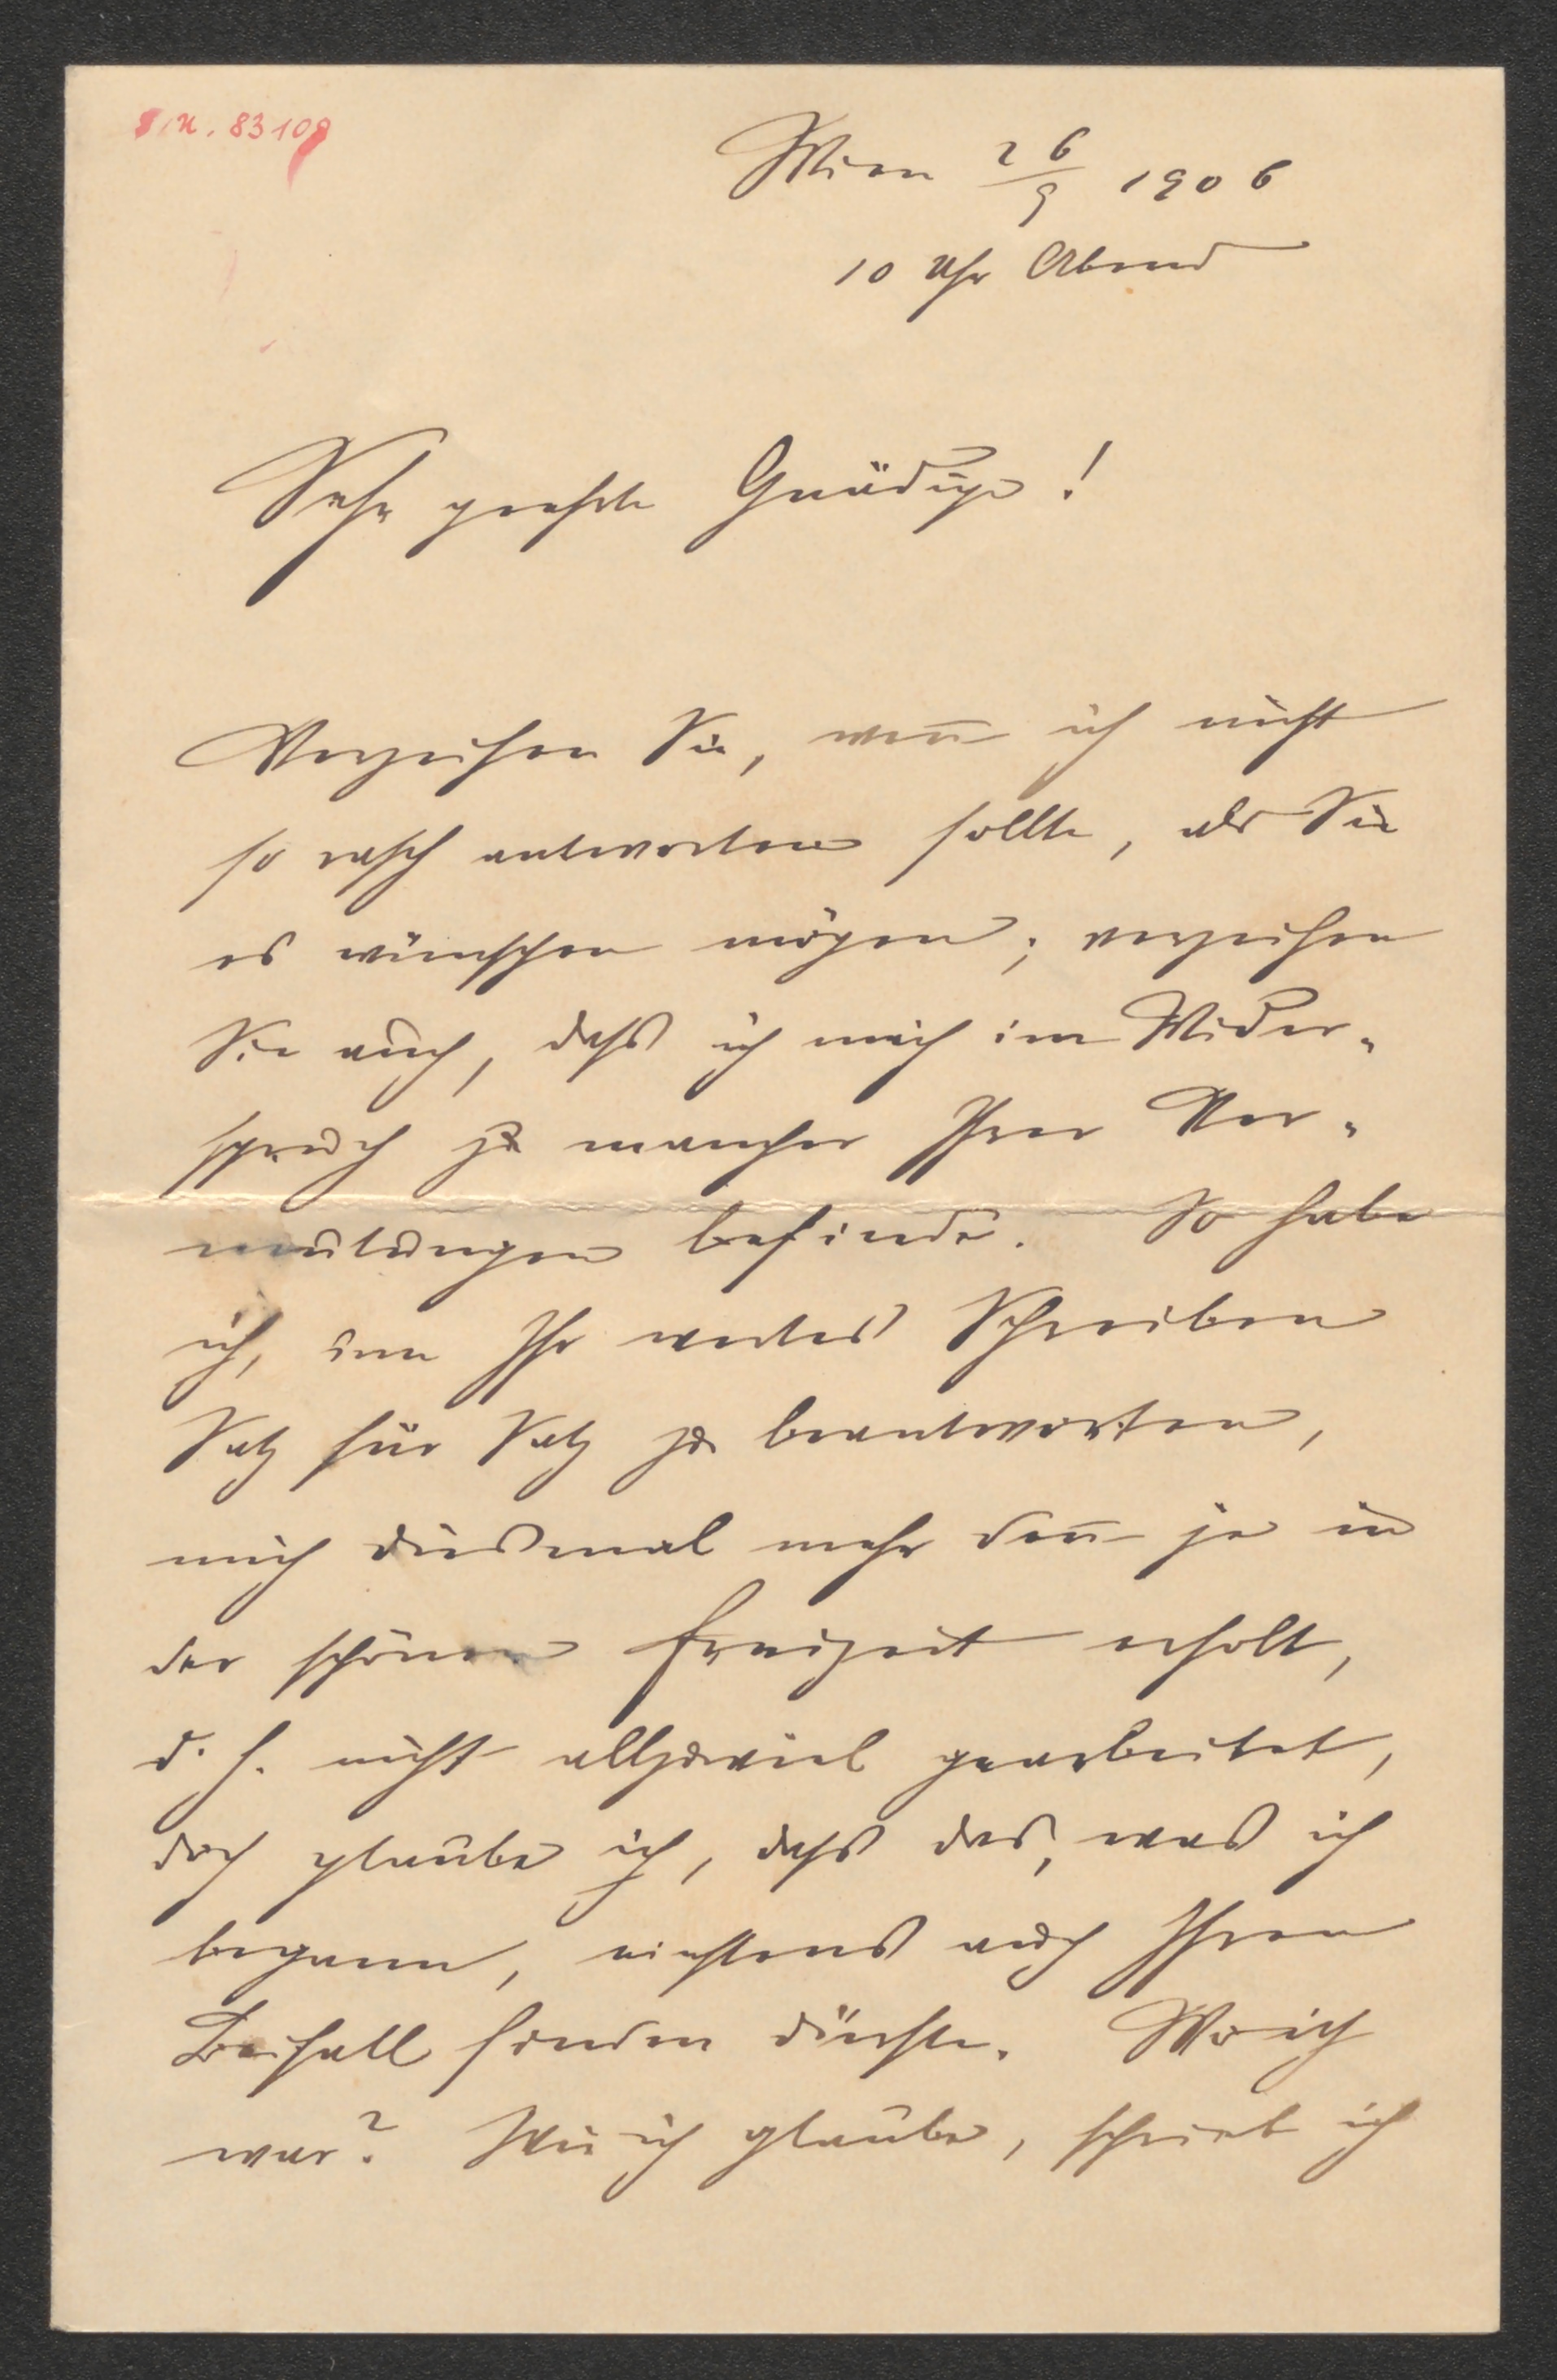 I.N. 83109
Wien 26/9 1906
10 Uhr Abend
Sehr geehrte Gnädige!
Verzeihen Sie, weñ ich nicht
so rasch antworten sollte, als Sie
es wünschen mögen; verzeihen
Sie auch, daß ich mich im Wider-
spruch zu mancher Ihrer Ver-
mutungen befinde. So habe
ich, um Ihr wertes Schreiben
Satz für Satz zu beantworten,
mich diesmal mehr deñ je in
der schönen Freizeit erholt,
d. h. nicht allzuviel gearbeitet,
doch glaube ich, daß das, was ich
begann, einstens auch Ihren
Beifall finden dürfte. Wo ich
war? Wie ich glaube, schrieb ich